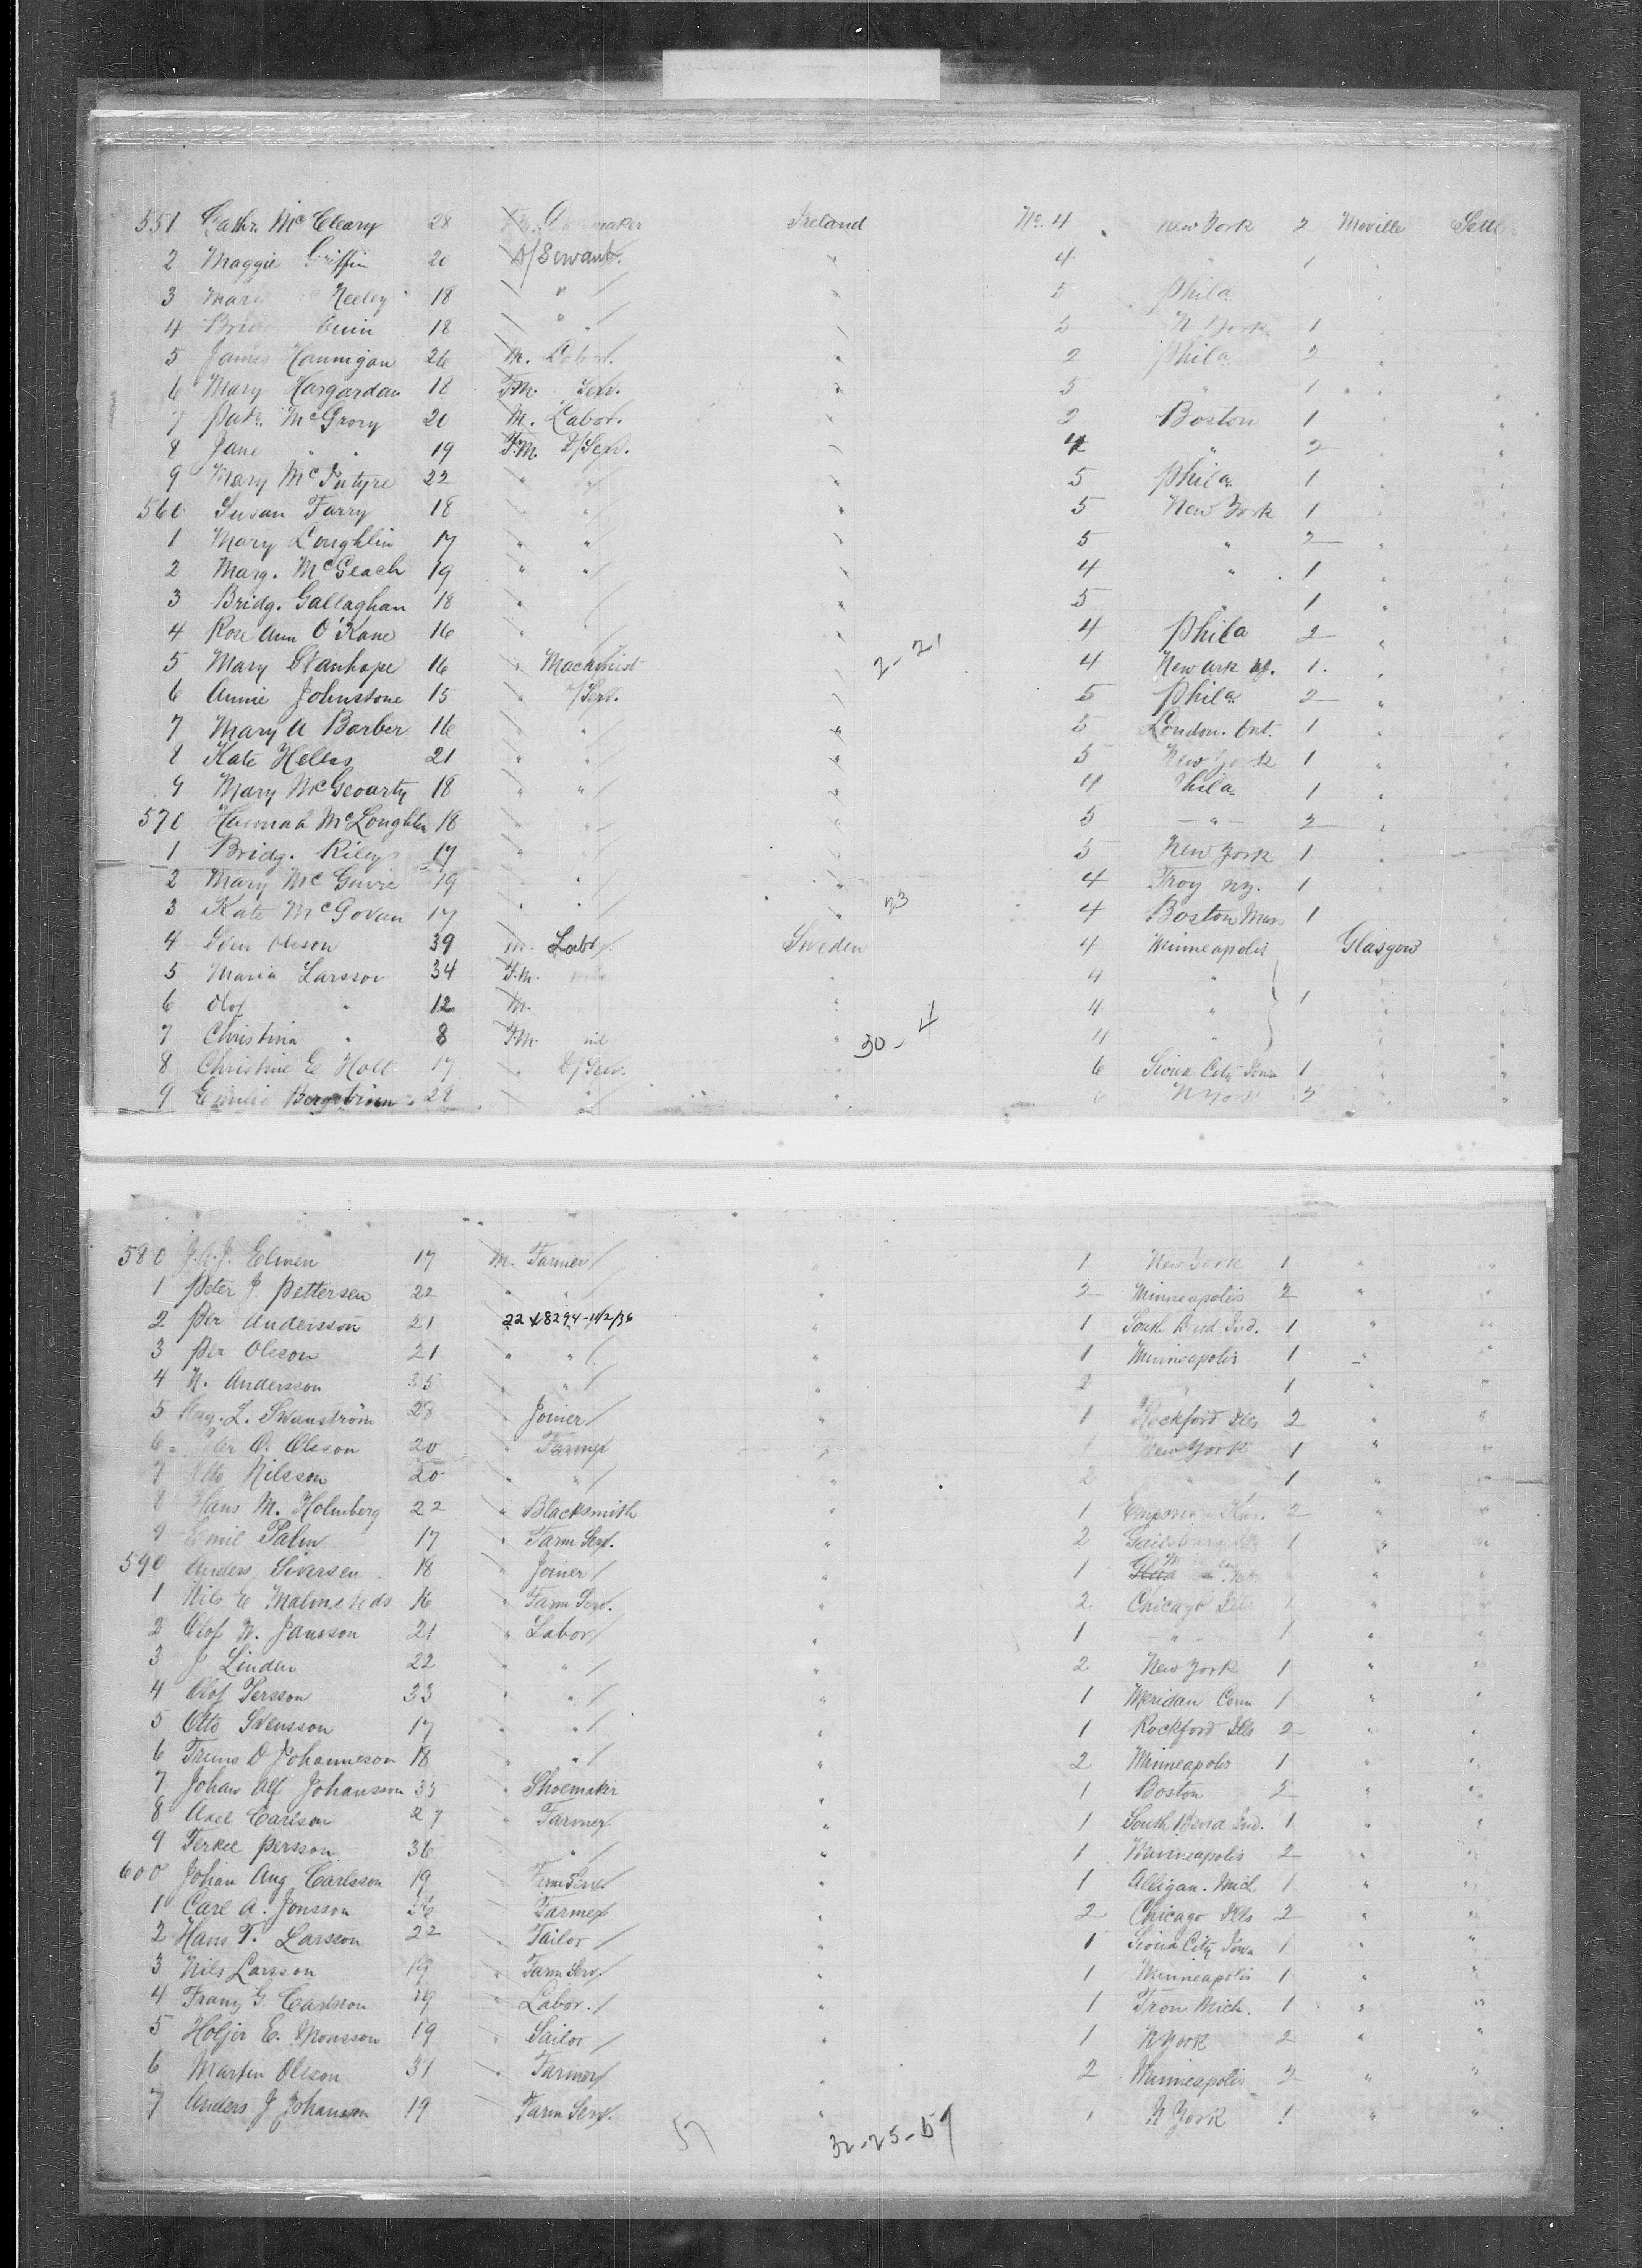 551 Cathr. McCleary 28 maker Ireland No. 4 New York 2 Moville Settl
2 Maggie Griffin 20 D/Servant. " 4 " 1 " "
3 Mary Neeley 18 " " 5 Phila.
4 18 " 5 N York 1
5 James Hannigan 26 M. Labor. " 2 Phila. 2 "
6 Mary Hargardan 18 F.M. Serv. " 5 " 1 " "
7 Patk. McGrory 20 M. Labor. " 2 Boston 1 "
8 Jane " " 19 F.M. D/Serv. " 4 " 2 " "
9 Mary McIntyre 22 " " " 5 Phila. 1 " "
560 Susan Farry 18 " " " 5 New York 1 " "
1 Mary Loughlin 17 " " " 5 " 2 " "
2 Marg. McGeach 19 " " " 4 " 1 " "
3 Bridg. Gallaghan 18 " " " 5 " 1 " "
4 Rose Ann O'Kane 16 " " " 4 Phila 2 " "
5 Mary Stanhope 16 " Machinist " 2-21 4 Newark NJ. 1. " "
6 Annie Johnstone 15 " D/Serv. " 5 Phila. 2 " "
7 Mary A Barber 16 " " " 5 London. Ont. 1 " "
8 Kate 21 " " " 5 New York 1 " "
9 Mary 18 " " " 4 Phila. 1 " "
570 Hannah McLoughlin 18 " " " 5 - " - 2 " "
1 Bridg. Riley 17 " " " 5 New York 1 " "
2 Mary 19 " " " 4 Troy NY. 1 " "
3 Kate McGovan 17 " " " 23 4 Boston Mass 1 "
4 Sven Olsson 39 M. Labr Sweden 4 Minneapolis Glasgow
5 Maria Larsson 34 F.M. " 4 " "
6 Olof " 12 M. " 4 " 1 " "
7 Christina " 8 F.M. nil " 30-4 4 " " "
8 Christine E Holt 17 " D/Serv. " 6 Sioux City Iowa 1 " "
9 28 " " " 6 N York 2 " "
580 J.A.J. Elmen 17 M. Farmer " 1 New York 1 " "
1 Peter J. Pettersen 22 " " " 2 Minneapolis 2 " "
2 Per Andersson 21 22 X8294-11/2/36 " 1 South Bend Ind. 1 " "
3 Per Olsson 21 " " " 1 Minneapolis 1 " "
4 N. Andersson 35 " " " 2 " 1 " "
5 L. Swanström 28 " Joiner " 1 Rockford Ills 2 " "
6 Peter O. Olsson 20 " Farmer " 1 New York 1 " "
7 Otto Nilsson 20 " " " 2 " 1 " "
8 Hans M. Holmberg 22 " Blacksmith " 1 Emporia Kan. 2 " "
9 Emil Palm 17 " Farm Serv. " 2 1 " "
590 Anders Siversen 18 " Joiner " 1 " "
1 Nils E 16 " Farm Serv. " 2 Chicago Ills 1 " "
2 Olof W. Jansson 21 " Labor " 1 - " - 1 " "
3 J Linden 22 " " " 2 New York 1 " "
4 Olof Persson 33 " " " 1 Meridan Conn 1 " "
5 Otto Svensson 17 " " " 1 Rockford Ills 2 " "
6 Johanneson 18 " " " 2 Minneapolis 1 " "
7 Johan Alf Johansson 35 " Shoemaker " 1 Boston 2 " "
8 Axel Carlson 27 " Farmer " 1 South Bend Ind. 1 " "
9 Persson 36 " " " 1 Minneapolis 2 " "
600 Johan Aug Carlsson 19 Farm Serv. " 1 Alligan. Mich 1 " "
1 Carl A. Jonsson 36 Farmer " 2 Chicago Ills 2 " "
2 Hans T. Larsson 22 Tailor " 1 Sioux City Iowa 1 " "
3 Nils Larsson 19 " Farm Serv. " 1 Minneapolis 1 " "
4 Franz G. Carlsson 19 " Labor. " 1 Iron Mich. 1 " "
5 Holjer E. Monsson 19 " Sailor " 1 N York 2 " "
6 Martin Olsson 31 " Farmer " 2 Minneapolis 2 " "
7 Anders J Johanson 19 Farm Serv. " 1 N York 1 " "
57 32-25-57